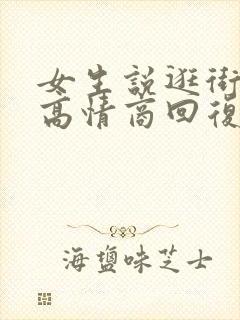 女生説逛街
高情商回復
海鹽味芝士